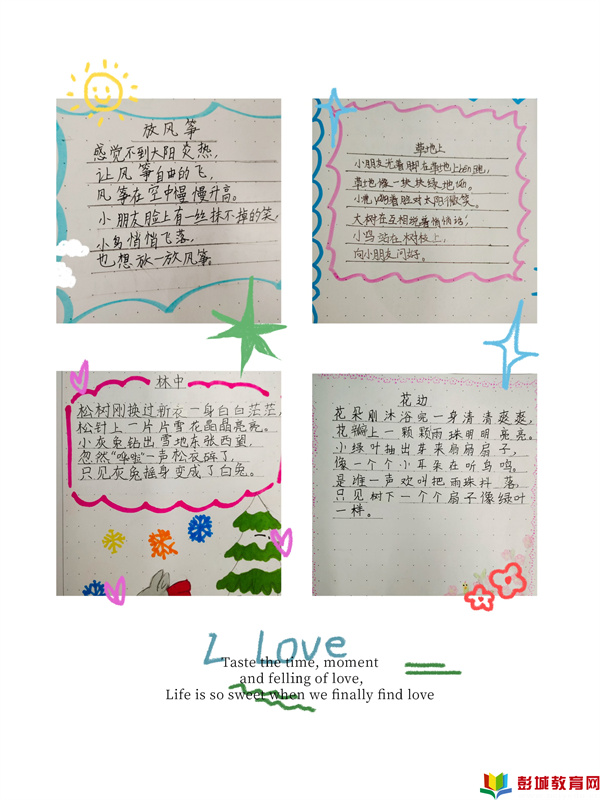 放风筝
感觉不到太阳炎热，
让风筝自由的飞，
风筝在空中慢慢升高。
小朋友脸上有一丝抹不掉的笑，
小鸟悄悄飞落，
也想放一放风筝。
草地上
小朋友光着脚在草地上跑，
草地像一块块绿地毯。
大树在互相说着悄悄话；
小鸟站在树枝上，
向小朋友问好。
林中
松树刚换过新衣一身白白茫茫，
松针上一片片雪花晶晶亮亮。
小灰兔钻出雪地东张西望，
忽然“哗啦”一声松衣碎了，
只见灰兔摇身变成了白兔。
花边
花朵刚沐浴完一身清清爽爽，
花瓣上一颗颗雨珠明明亮亮。
小绿叶抽出芽来扇扇扇子，
像一个个小耳朵在听鸟鸣，
是谁一声欢叫把雨珠抖落，
只见树下一个个扇子像绿叶
一样。
L Love
Taste the time, moment
and felling of love,
Life is so sweet when we finally find love
彭城教育网